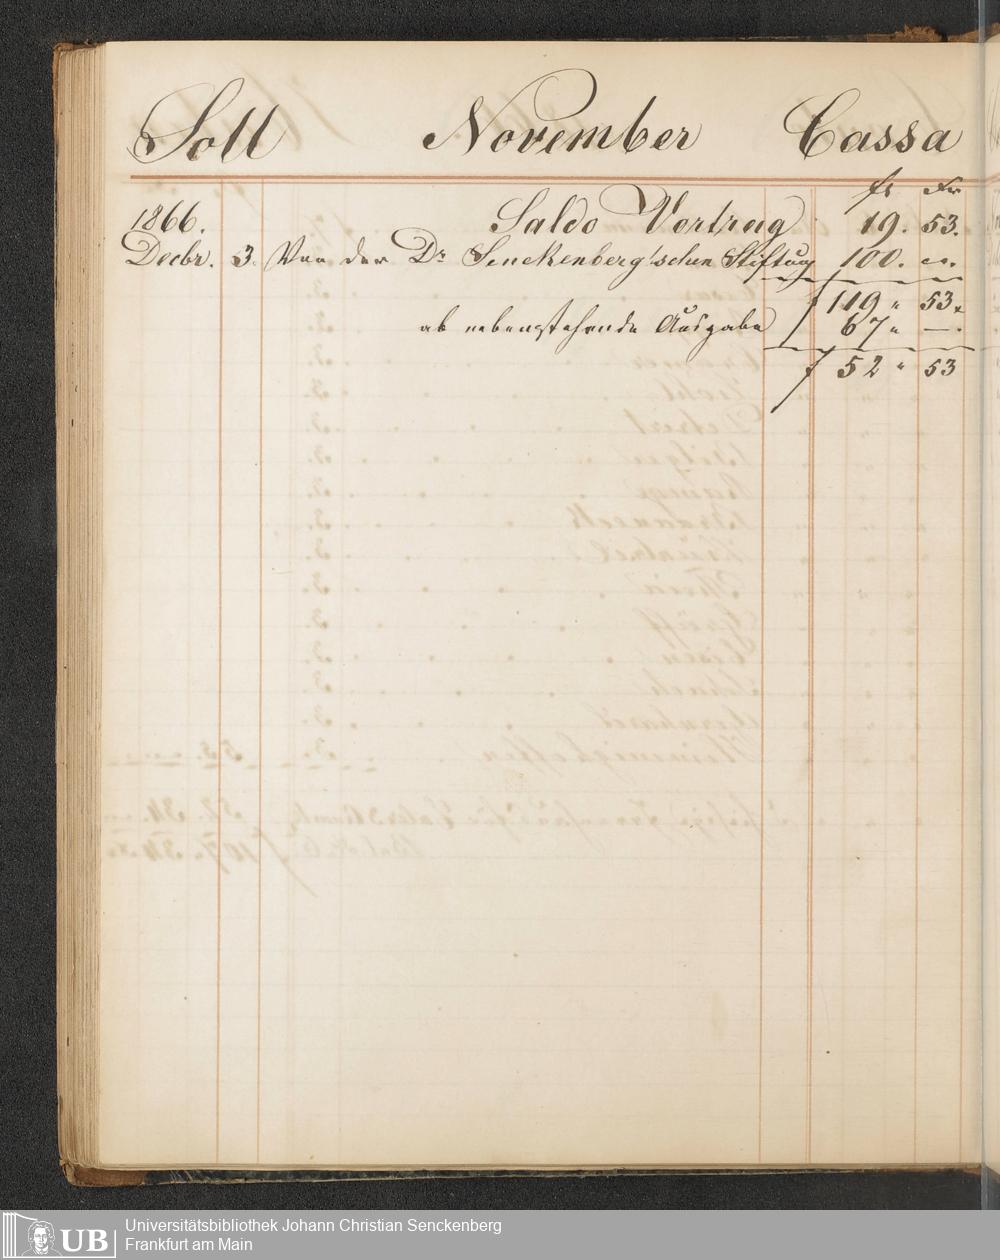 Soll November Cassa
fl Xr
1866. Saldo Vortrag 19. 53.
Decbr. 3. Von der Dr Senckenberg'schen Stiftung 100. „.
f 119 „ 53.
ab nebenstehende Ausgabe f 67 „ —.
f 52 „ 53
UB Universitätsbibliothek Johann Christian Senckenberg
Frankfurt am Main